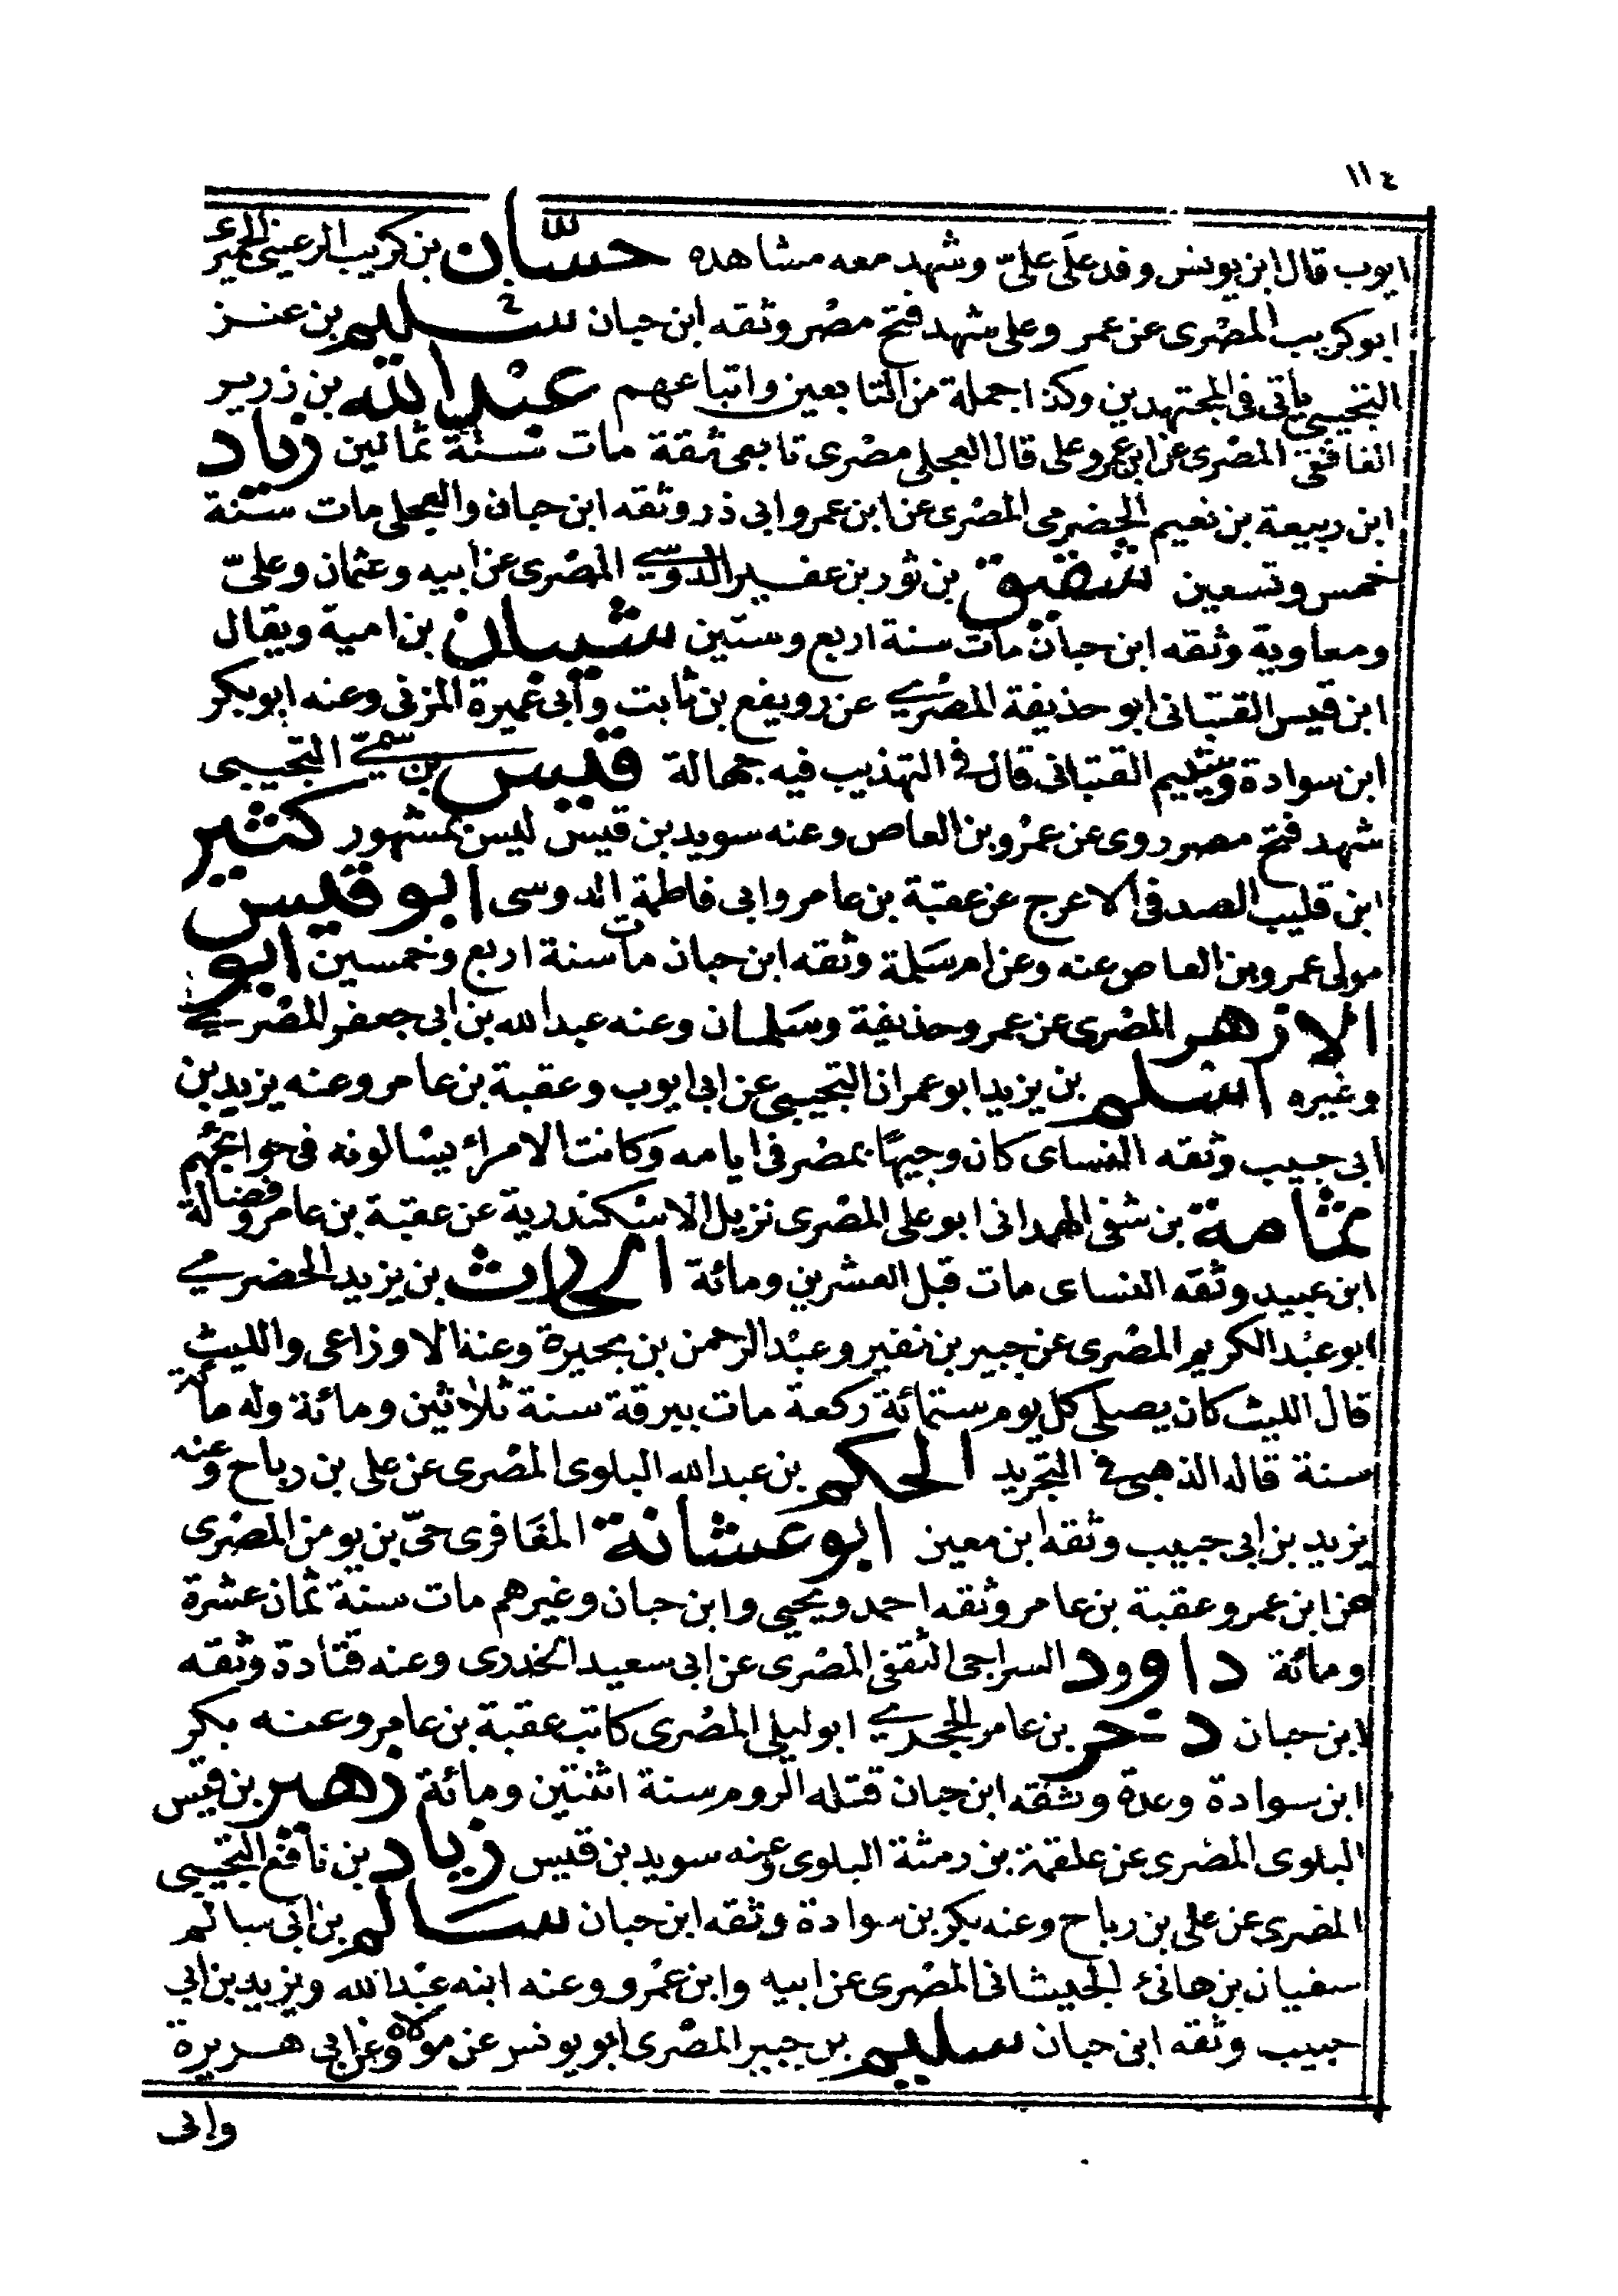 ١١٤
ايوب قال ابن يونس وفد على علىّ وشهد معه مشاهده حسّان بن كريب الرعينى الحميرى
ابو كريب المصرى عن عمر وعلى شهد فتح مصر وثقه ابن حبان سليم بن عنز
التجيبى يأتى فى المجتهدين وكذا جملة من التابعين واتباعهم عبد الله بن زرير
الغافقى المصرى عن ابن عمر وعلى قال العجلى مصرى تابعى ثقة مات سنة ثمانين زياد
ابن ربيعة بن نعيم الحضرمى المصرى عن ابن عمر وابى ذر وثقه ابن حبان والعجلى مات سنة
خمس وتسعين شقيق بن ثور بن عفير الدوسي المصرى عن ابيه وعثمان وعلىّ
ومعاوية وثقه ابن حبان مات سنة اربع وستين شيبان بن امية ويقال
ابن قيس القتبانى ابو حذيفة المصري عن رويفع بن ثابت وأبى عميرة المزنى وعنه ابو بكر
ابن سوادة وشييم القتبانى قال في التهذيب فيه جهالة قيس بن سمىّ التجيبى
شهد فتح مصر روى عن عمرو بن العاص وعنه سويد بن قيس ليس بمشهور كثير
ابن قليب الصدفى الاعرج عن عقبة بن عامر وابى فاطمة الدوسى ابو قيس
مولى عمرو بن العاص عنه وعن ام سلمة وثقه ابن حبان مات سنة اربع وخمسين ابو
الازهر المصرى عن عمر وحذيفة وسلمان وعنه عبد الله بن ابى جعفر المصري
وغيره اسلم بن يزيد ابو عمران التجيبى عن ابى ايوب وعقبة بن عامر وعنه يزيد بن
ابى حبيب وثقه النساى كان وجيهًا بمصر فى ايامه وكانت الامراء يسالونه فى حوائجهم
ثمامة بن شفى الهمدانى ابو على المصرى نزيل الاسكندرية عن عقبة بن عامر وفضالة
ابن عبيد وثقه النساى مات قبل العشرين ومائة الحارث بن يزيد الحضرمي
ابو عبد الكريم المصرى عن جبير بن نفير وعبد الرحمن بن بحيرة وعنه الاوزاعى والليث
قال الليث كان يصلى كل يوم ستمائة ركعة مات ببرقة سنة ثلاثين ومائة وله مائة
سنة قاله الذهبى فى التجريد الحكم بن عبد الله البلوى المصرى عن على بن رباح وعنه
يزيد بن ابى حبيب وثقه ابن معين ابو عشانة المغافرى حىّ بن يومن المصرى
عن ابن عمر وعقبة بن عامر وثقه احمد ويحيى وابن حبان وغيرهم مات سنة ثمان عشرة
ومائة داوود السراجى الثقفى المصرى عن ابى سعيد الخدرى وعنه قتادة وثقه
ابن حبان دخر بن عامر الحجري ابو ليلى المصرى كاتب عقبة بن عامر وعنه بكر
ابن سوادة وعدة وثقه ابن حبان قتله الروم سنة اثنتين ومائة زهير بن قيس
البلوى المصرى عن علقمة بن رمثة البلوى وعنه سويد بن قيس زياد بن نافع التجيبى
المصرى عن على بن رباح وعنه بكر بن سوادة وثقه ابن حبان سالم بن ابى سالم
سفيان بن هانئ الجيشانى المصرى عن ابيه وابن عمرو وعنه ابنه عبد الله ويزيد بن ابى
حبيب وثقه ابن حبان سليم بن جبير المصرى ابو يونس عن مولاه وعن ابى هريرة
وابى